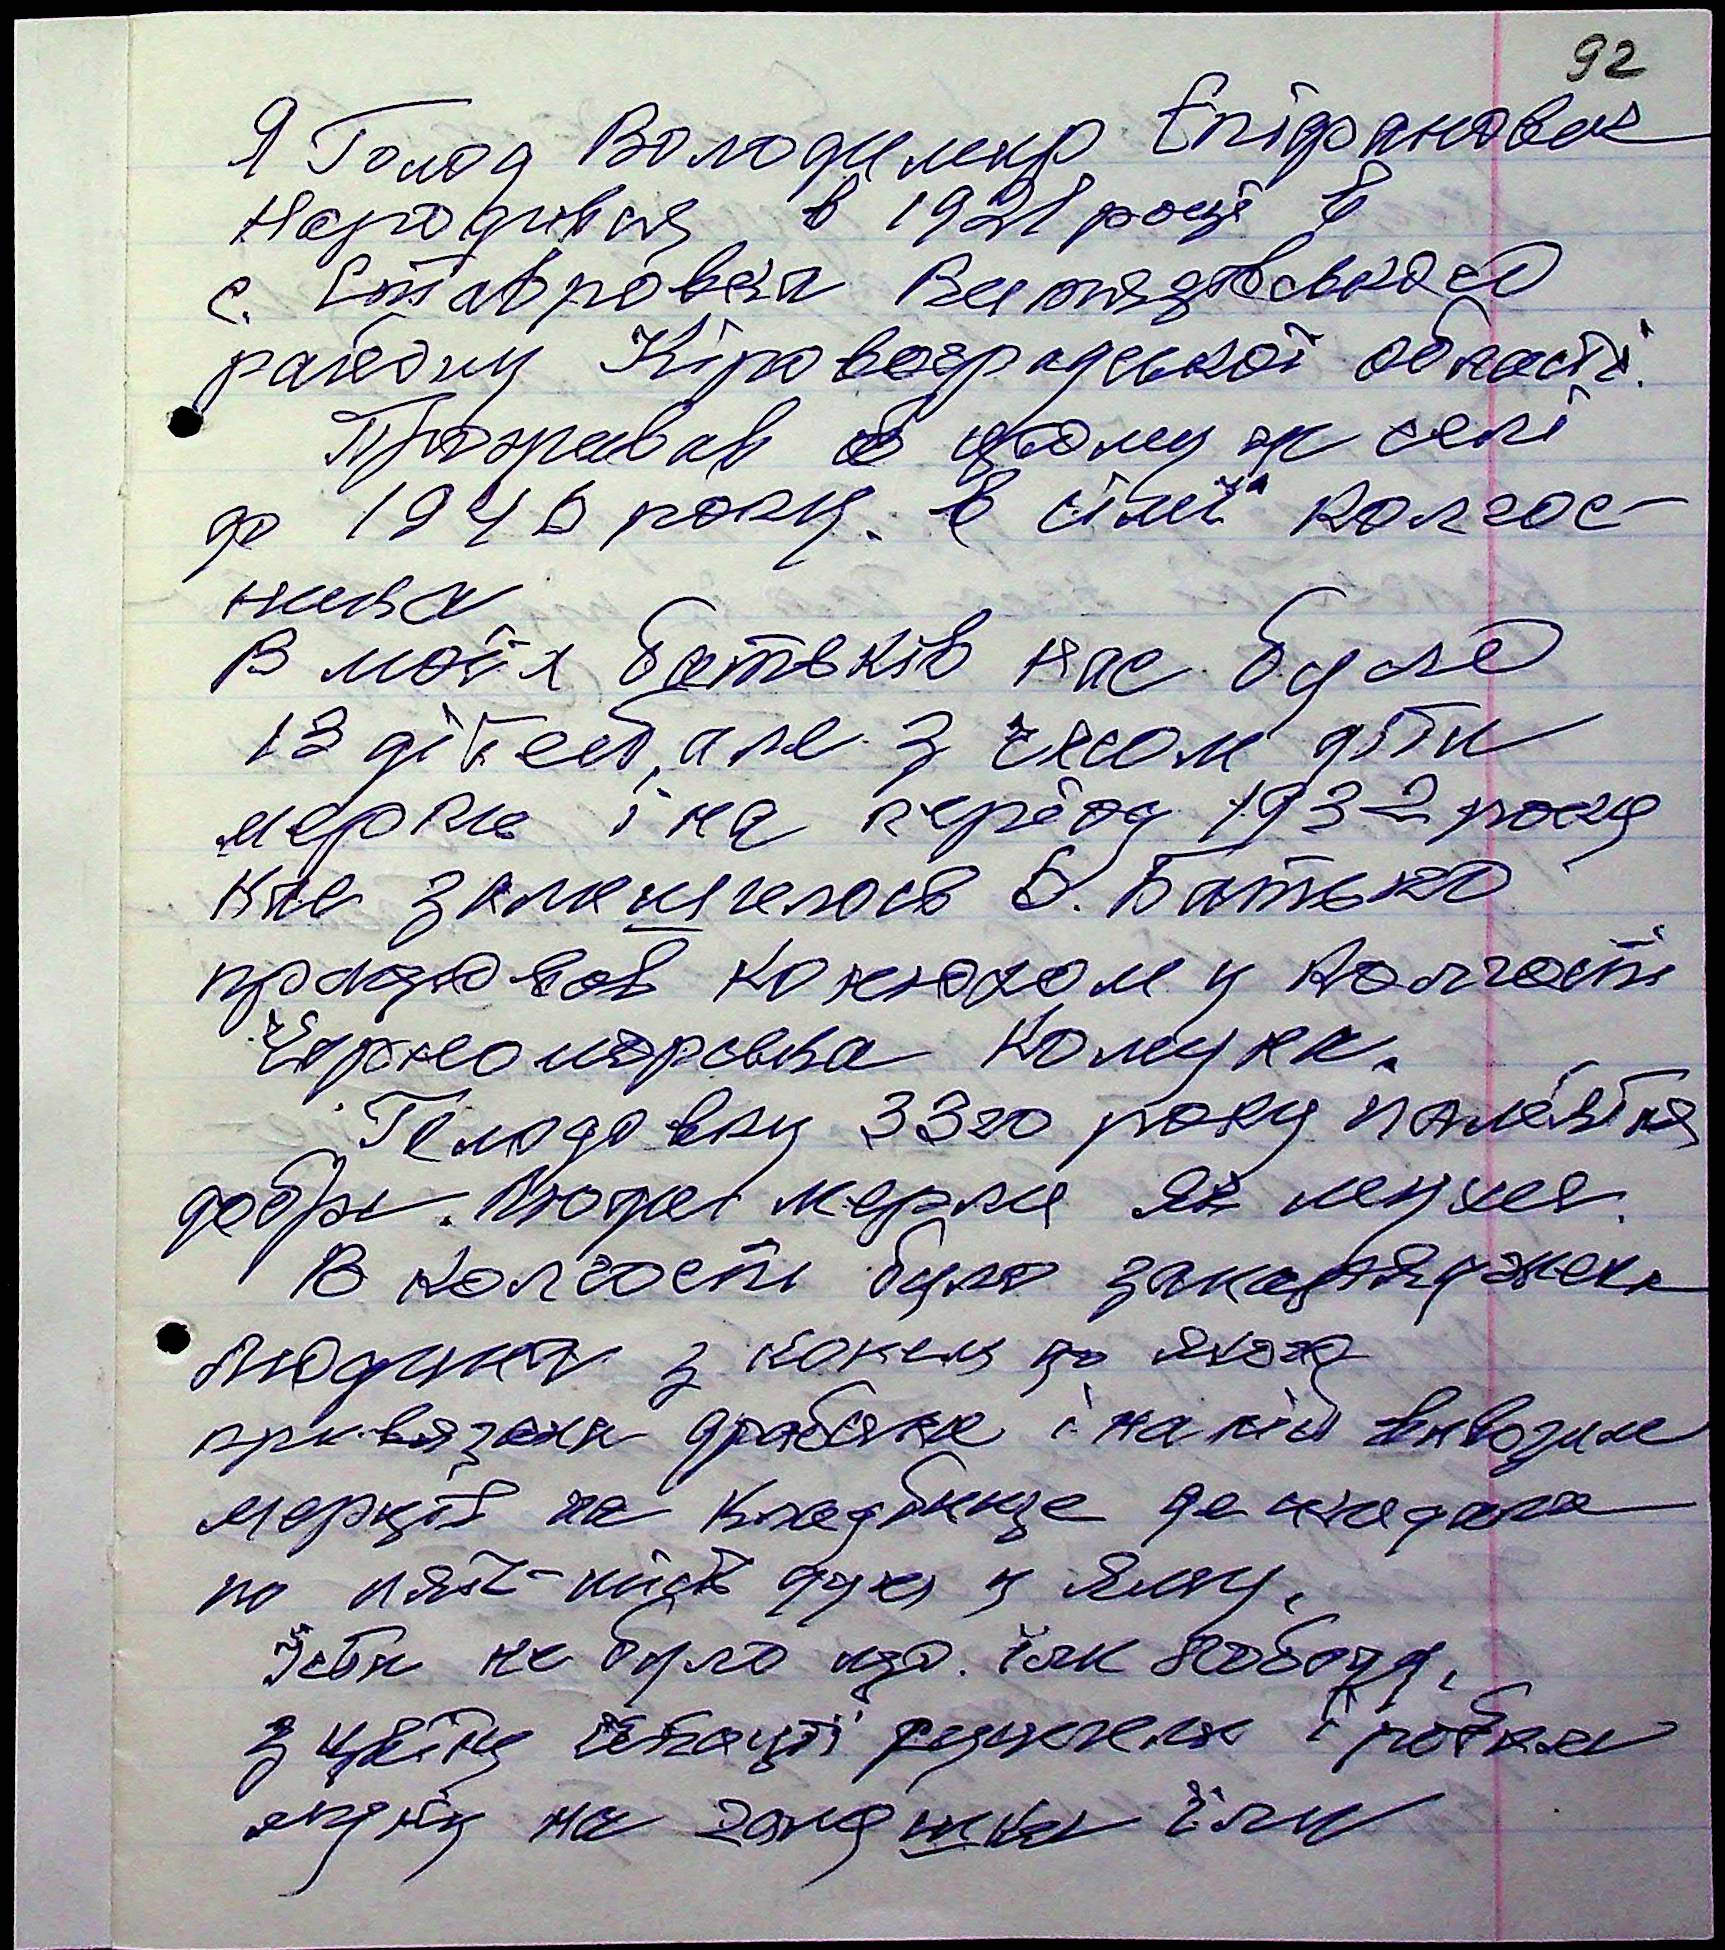 92
Я Голод Володимир Єпіфанович
народився в 1921 році в
с. Ставровка Витязевського
району Кіровоградської області.
Проживав в цьому ж селі
до 1946 року. В сімї колгос-
пника
В моїх батьків нас було
13 дітей, але з часом діти
мерли і на період 1932 року
нас залишилось 6. Батько
працював конюхом у колгоспі
Чорноморська Комуна.
Голодовку 33го року памятаю
добре. Люди мерли як мухи.
В колгоспі була
людина з конем до якого
привязана драбина і на ній вивозили
мерців на кладбище де кидали
по пять-шість душ у яму.
Їсти не було що. Їли лободу,
з цвіту акації сушили і робили
на галушки їли